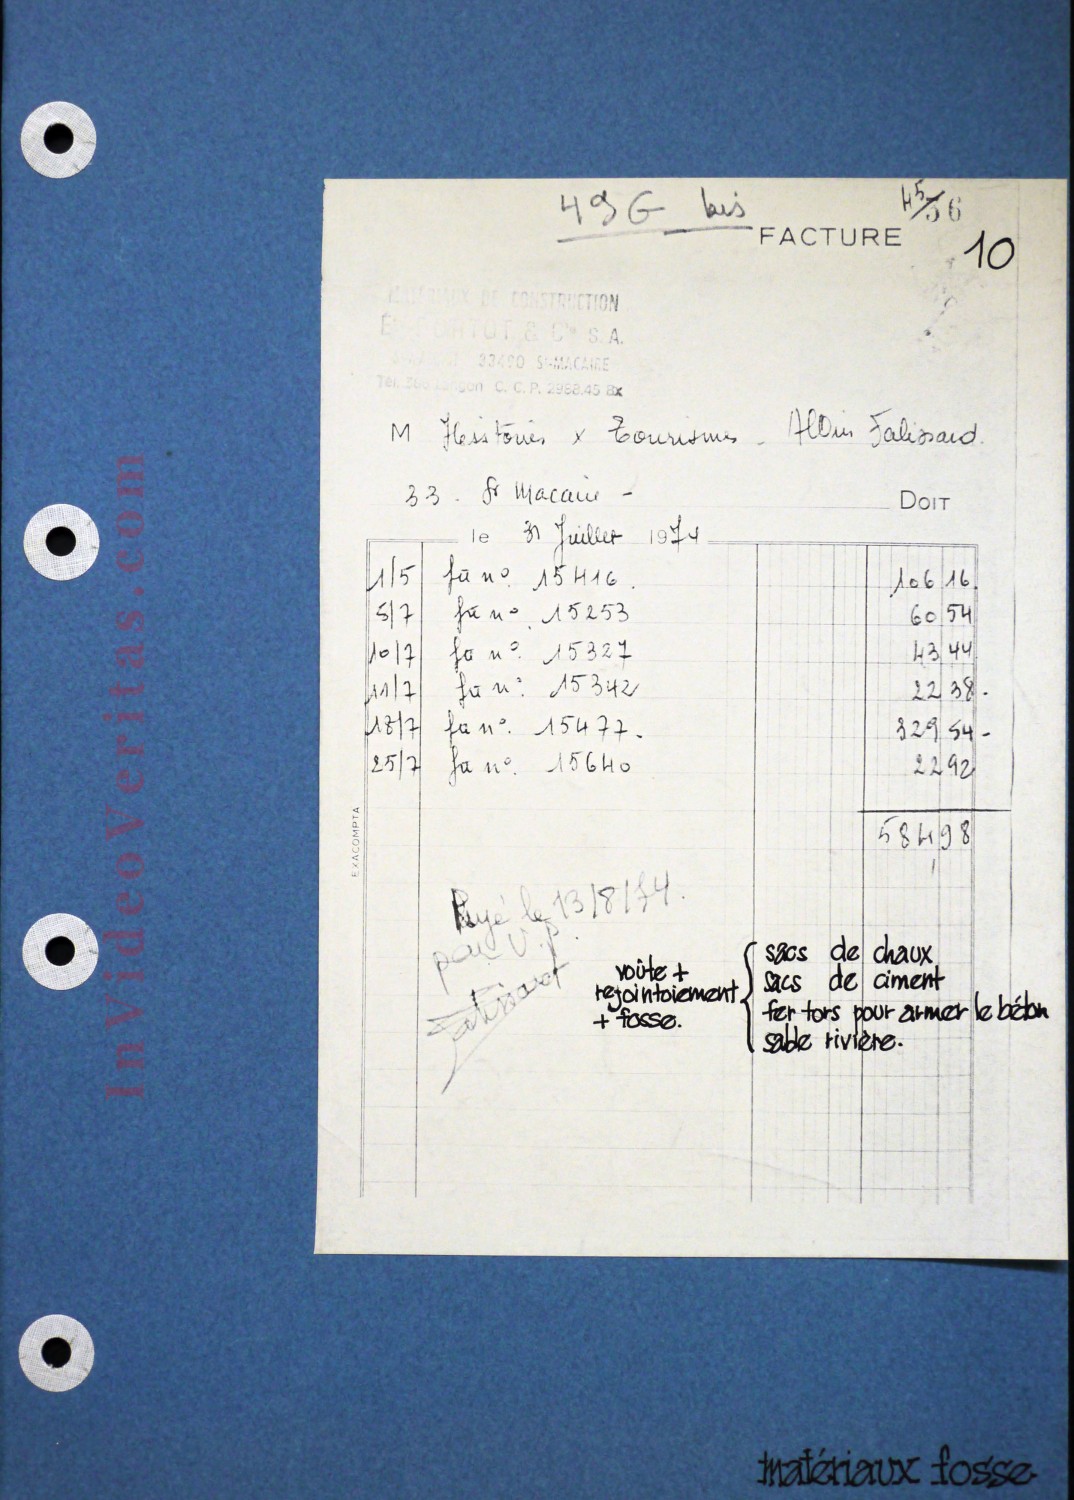 49G bis
45/56
FACTURE
10
MATERIAUX DE CONSTRUCTION
& Cie S.A.
33490 St-MACAIRE
Tél. 300 Langon C. C. P. 2988.45 Bx
M Histoires x Tourismes - Albin Falissard.
33. St Macaire - DOIT
le 31 Juillet 1974
1/5 fa no. 15416. 106 16.
5/7 fa no. 15253 60 54
10/7 fa no. 15327 43 44
11/7 fa no. 15342 22 38-
18/7 fa no. 15477. 329 54-
25/7 fa no. 15640 22 92
584,98
EXACOMPTA
Payé le 13/8/74.
pour V.
voûte +
rejointoiement
+ fosse.
sacs de chaux
sacs de ciment
fer tors pour armer le béton
sable rivière.
InVideoVeritas.com
matériaux fosse